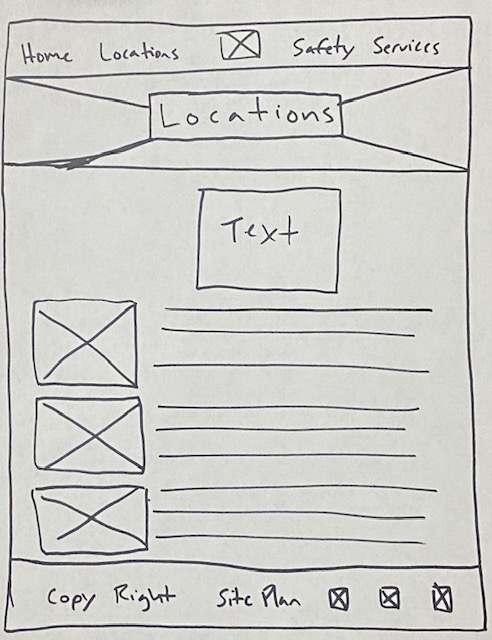 Home Locations Safety Services
Locations
Text
Copy Right Site Plan